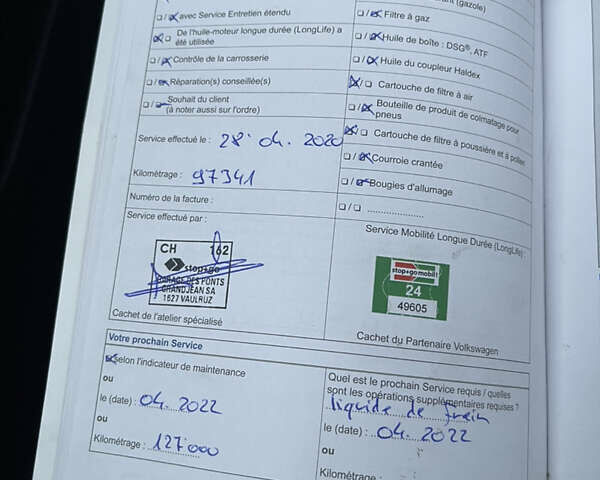 (gazole)
avec Service Entretien étendu
Filtre à gaz
De l'huile-moteur longue durée (LongLife) a
été utilisée
Huile de boîte : DSG®, ATF
Contrôle de la carrosserie
Huile du coupleur Haldex
Réparation(s) conseillée(s)
Cartouche de filtre à air
Souhait du client
(à noter aussi sur l'ordre)
Bouteille de produit de colmatage pour
pneus
Service effectué le : 28. 04. 2020
Cartouche de filtre à poussière et à pollen
Courroie crantée
Kilométrage : 97341
Bougies d'allumage
Numéro de la facture :
Service effectué par :
Service Mobilité Longue Durée (LongLife) :
CH 162
stop+go
GARAGE DES PONTS
GRANDJEAN SA
1627 VAULRUZ
stop+go mobil!
24
49605
Cachet de l'atelier spécialisé
Cachet du Partenaire Volkswagen
Votre prochain Service
selon l'indicateur de maintenance
ou
le (date) : 04. 2022
ou
Kilométrage : 127'000
Quel est le prochain Service requis / quelles
sont les opérations supplémentaires requises ?
liquide de frein
le (date) : 04. 2022
ou
Kilométrage :